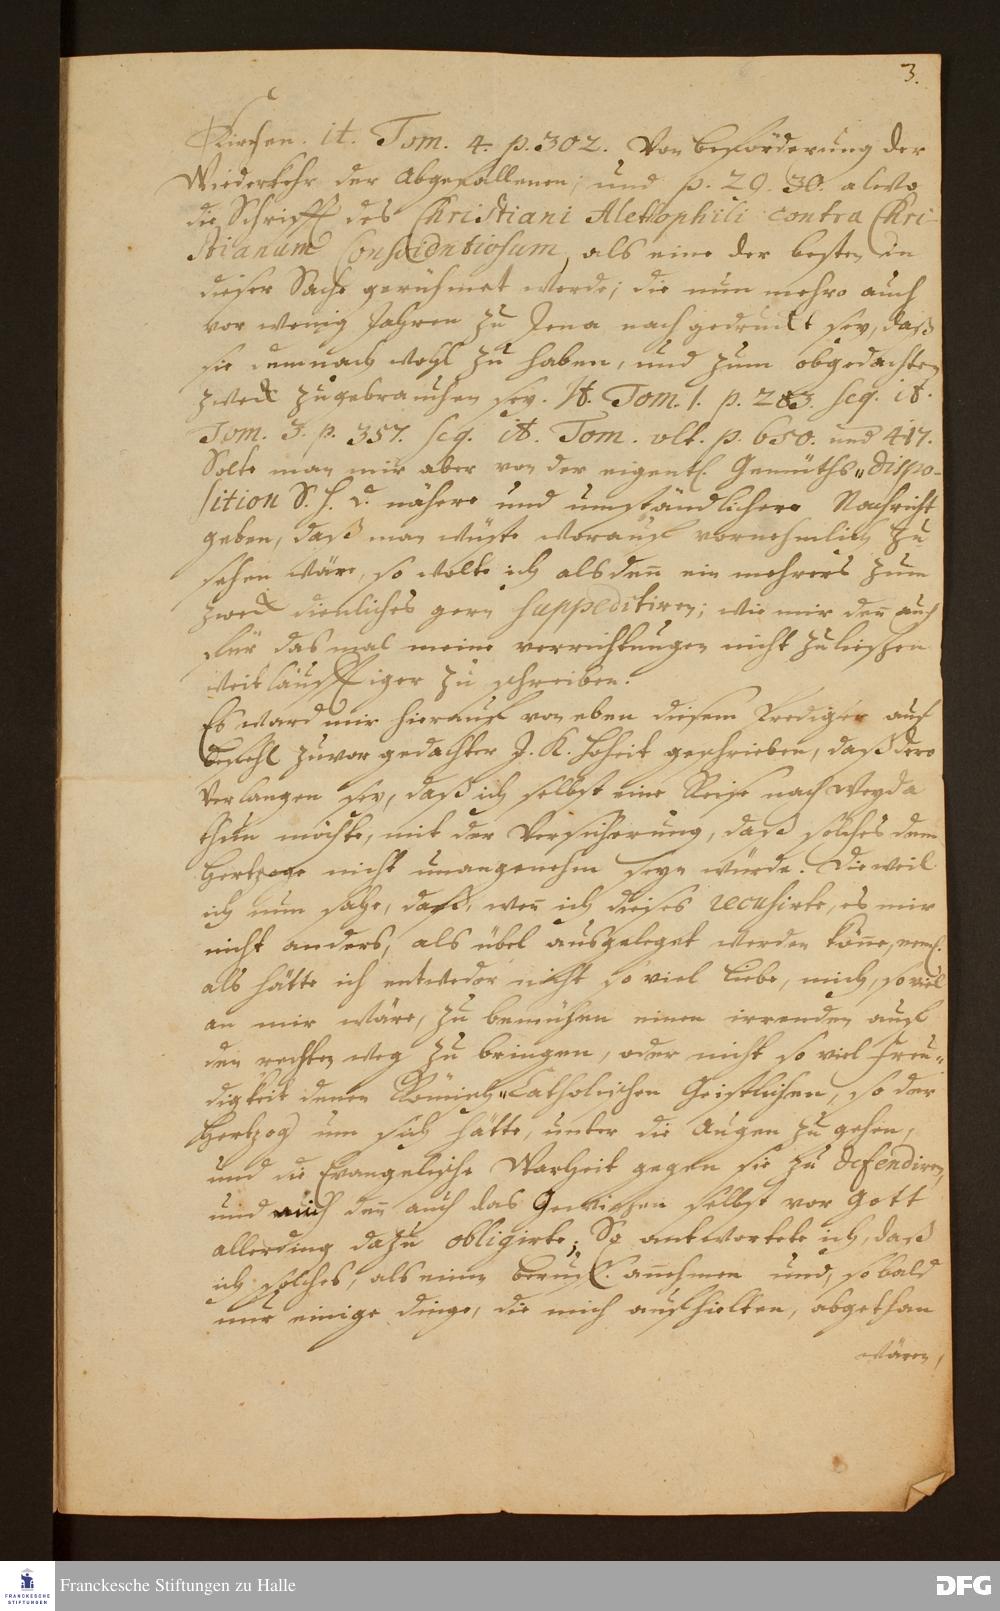 3.
Kirchen. it. Tom. 4. p. 302. Von beförderung der
Wiederkehr der Abgefallenen; und p. 29. 30. alwo
die Schrifft des Christiani Alethophili contra Chri-
stianum Conscientiosum, als eine der besten in
dieser Sache gerühmet werde; die nun mehro auch
vor wenig Jahren zu Jena nachgedruckt sey, daß
sie demnach wohl zu haben, und zum obgedachten
zweck zugebrauchen sey. It. Tom. 1. p. 283. seq. it.
Tom. 3. p. 357. seq. it. Tom. ult. p. 650. und 417.
Solte man mir aber von der eigentl. Gemüths-dispo-
sition S. H. D. nähere und umständlichere Nachricht
geben, daß man wüste worauf vornehmlich zu
sehen wäre, so wolte ich alsdenn ein mehrers zum
zweck dienliches gern suppeditiren; wie mir denn auch
für das mal meine verrichtungen nicht zuliessen
weitläufftiger zu schreiben.
Es ward mir hierauf von eben diesem Prediger auf
Befehl zuvor gedachter J. K. Hoheit geschrieben, daß dero
Verlangen sey, daß ich selbst eine Reise nach Weyda
thun möchte, mit der Versicherung, daß solches dem
Hertzoge nicht unangenehm seyn würde. Dieweil
ich nun sahe, daß, wenn ich dieses recusirte, es mir
nicht anders, als übel ausgeleget werden könne, neml.
als hätte ich entweder nicht so viel Liebe, mich, so viel
an mir wäre, zu bemühen einen irrenden auf
den rechten weg zu bringen, oder nicht so viel Freu-
digkeit denen Römisch-Catholischen Geistlichen, so der
Hertzog um sich hätte, unter die Augen zu gehen,
und die Evangelische Warheit gegen sie zu defendiren,
und mich denn auch das Gewissen selbst vor Gott
allerding dazu obligirte; So antwortete ich, daß
ich solches, als einen beruff annehmen und, so bald
nur einige dinge, die mich aufhielten, abgethan
wären,
Franckesche Stiftungen zu Halle
FRANCKESCHE
STIFTUNGEN
DFG